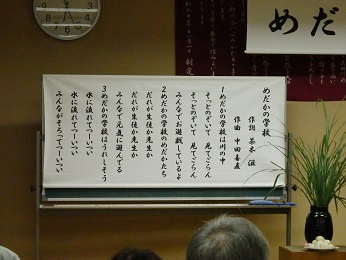 めだかの学校
作詞 茶木 滋
作曲 中田喜直
1めだかの学校は川の中
そっとのぞいて 見てごらん
そっとのぞいて 見てごらん
みんなでお遊戯しているよ
2めだかの学校のめだかたち
だれが生徒か先生か
だれが生徒か先生か
みんなで元気に遊んでる
3めだかの学校はうれしそう
水に流れてつーいつい
水に流れてつーいつい
みんながそろってつーいつい
めだ